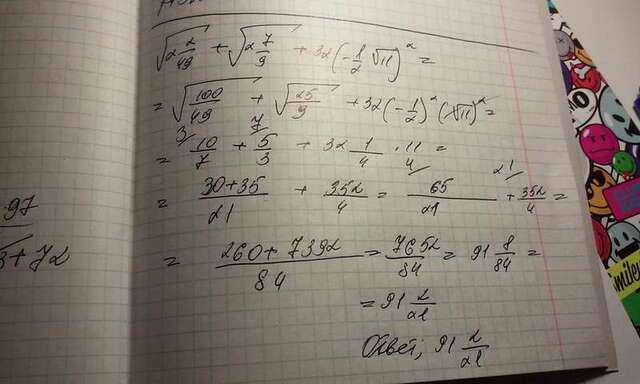 √2 2/49 + √2 7/9 + 32(-1/2 √11)² =
= √100/49 + √25/9 + 32(-1/2)²(√11)² =
= 3/ 10/7 + 7/ 5/3 + 32 1/4 · 11 =
= 30+35/21 + 352/4 = 4/ 65/21 + 21/ 352/4 =
= 260+7392/84 = 7652/84 = 91 8/84 =
= 91 2/21
Ответ; 91 2/21
97
3+72
Smiley